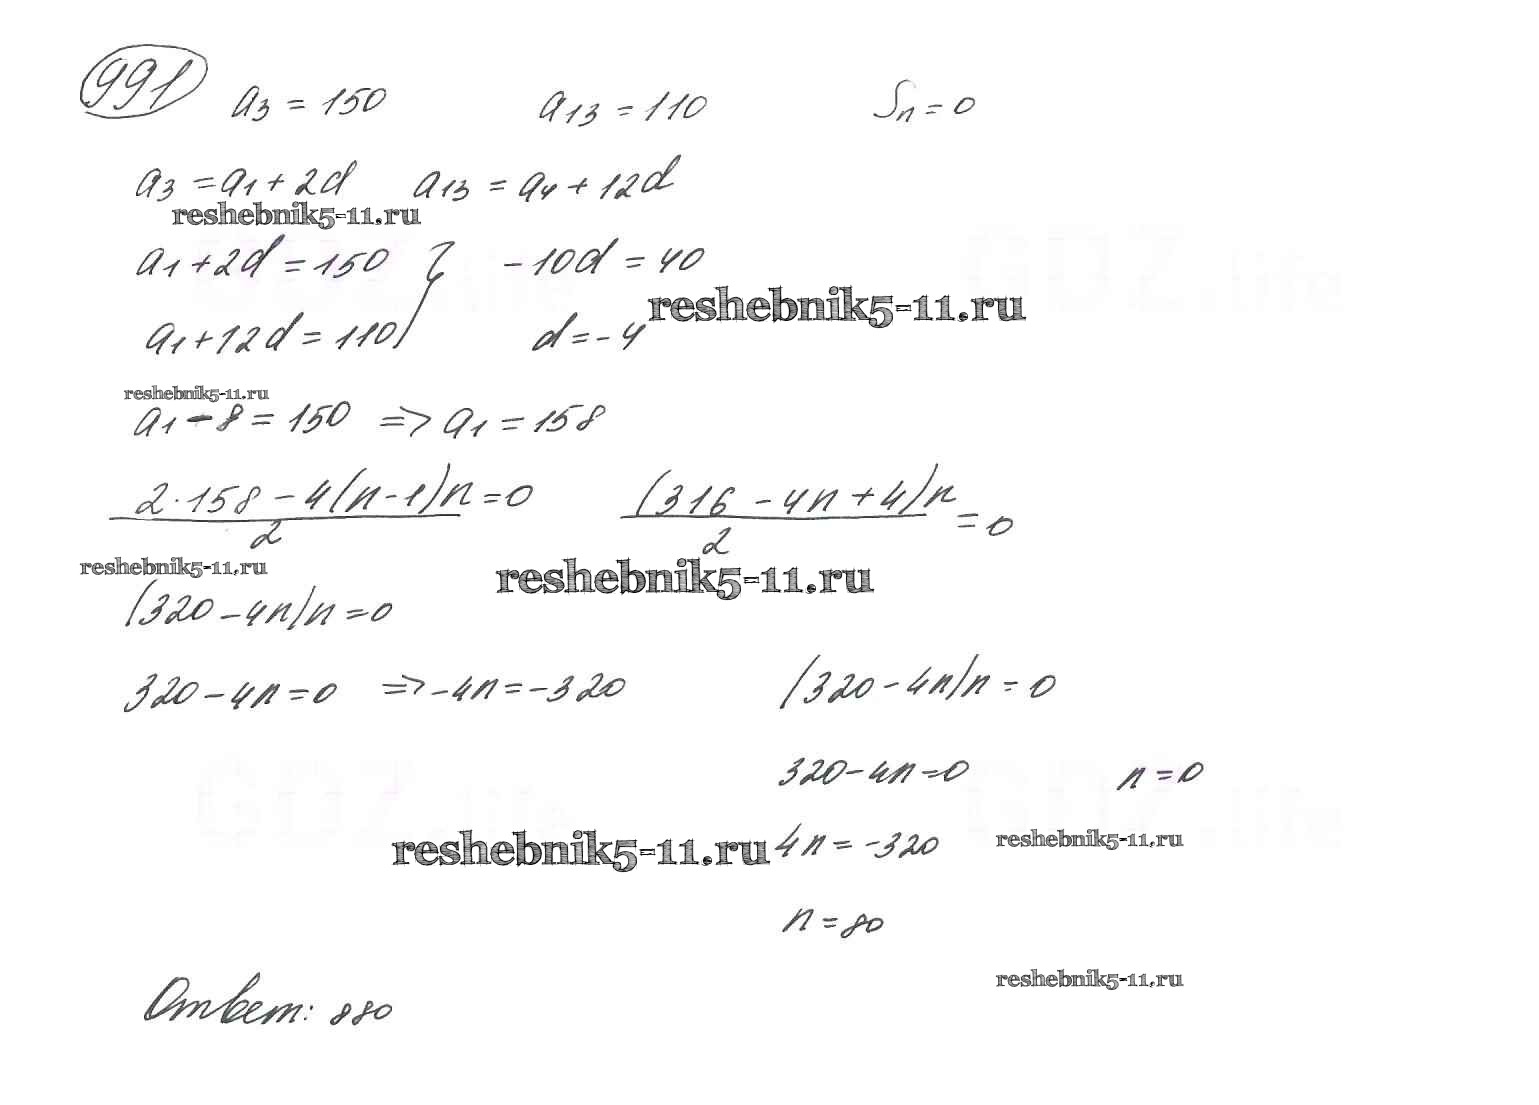 991 a₃ = 150 a₁₃ = 110 Sₙ = 0
a₃ = a₁ + 2d a₁₃ = a₁ + 12d
reshebnik5-11.ru
a₁ + 2d = 150 } -10d = 40
reshebnik5-11.ru
a₁ + 12d = 110 d = -4
reshebnik5-11.ru
a₁ - 8 = 150 => a₁ = 158
2·158 - 4(n-1)n = 0 (316 - 4n + 4)n
2 2 = 0
reshebnik5-11.ru reshebnik5-11.ru
(320 - 4n)n = 0
320 - 4n = 0 => -4n = -320 (320 - 4n)n = 0
320 - 4n = 0 n = 0
reshebnik5-11.ru 4n = -320 reshebnik5-11.ru
n = 80
reshebnik5-11.ru
Ответ: 880